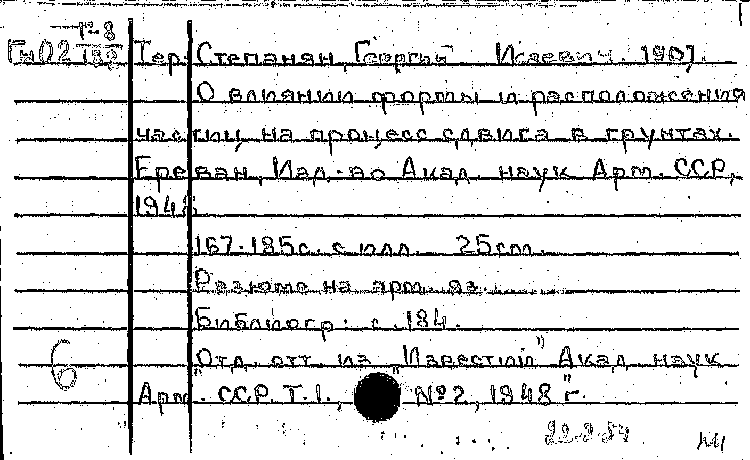 Г-8
ГпО2 182 Тер-Степанян, Георгий Исаевич. 1907.
О влиянии формы и расположения
частиц на процесс сдвига в грунтах.
Ереван, Изд-во Акад. наук Арм. ССР,
1948.
167-185с. с илл. 25cm.
Резюме на арм. яз.
Библиогр: с. 184.
"Отд. отт. из "Известий" Акад. наук
Арм. ССР. Т.1., №2, 1948 г."
6
22.2.84